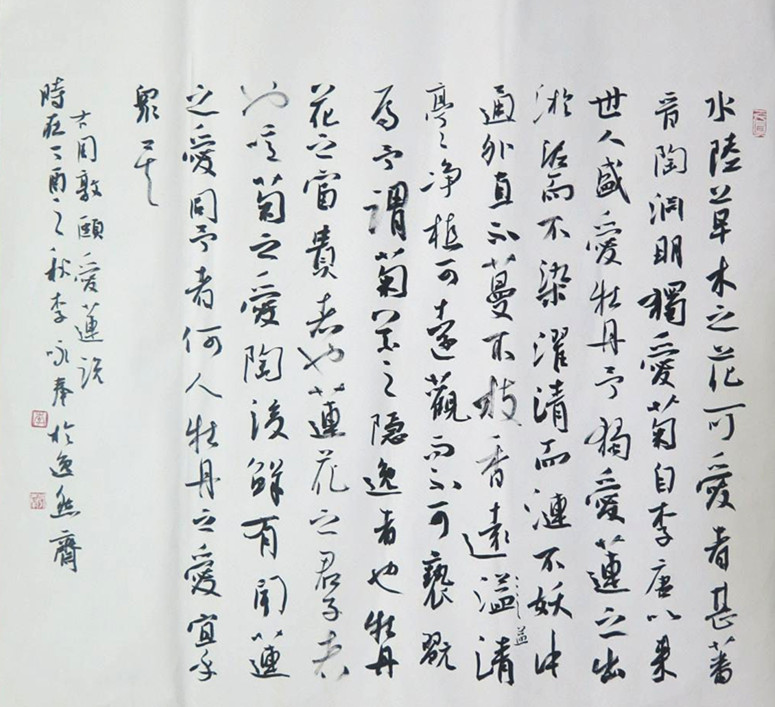 水陸草木之花可愛者甚蕃
晋陶渊明獨愛菊自李唐以来
世人盛愛牡丹予獨愛蓮之出
淤泥而不染濯清而漣不妖中
通外直不蔓不枝香遠溢清
益
亭々净植可遠觀而不可褻翫
焉予謂菊花之隐逸者也牡丹
花之富貴者也蓮花之君子者
也噫菊之愛陶後鮮有聞蓮
之愛同予者何人牡丹之愛宜乎
眾矣
古周敦頤愛蓮説
時在丁酉之秋李咏奉於逸然齋